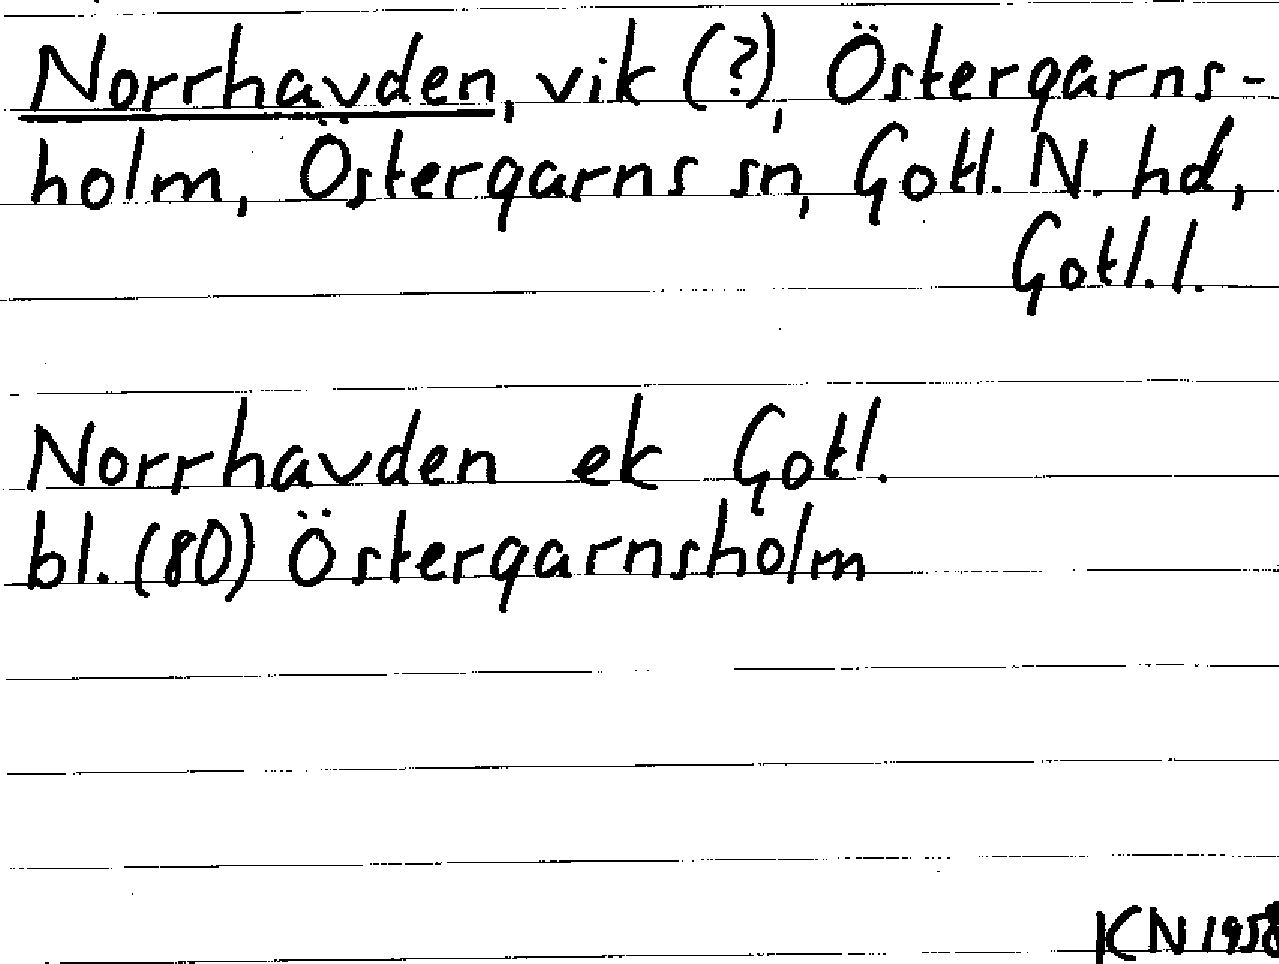 Norrhavden, vik (?), Östergarns-
holm, Östergarns sn, Gotl. N. hd,
Gotl. l.
Norrhavden ek Gotl.
bl. (80) Östergarnsholm
KN 1958